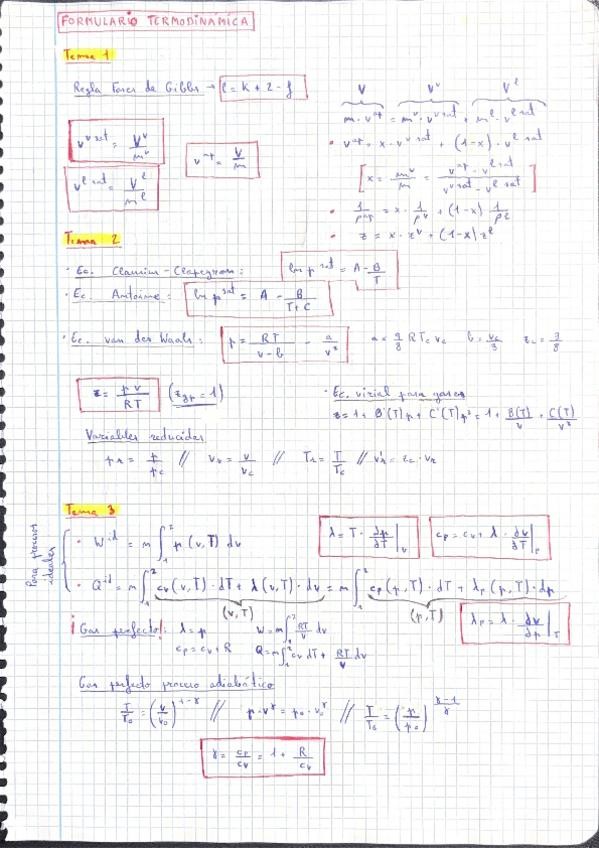 FORMULARIO TERMODINÁMICA
Tema 1
Regla Fases de Gibbs → l = K + 2 - f
V   V^v   V^l
m · v^ap = m^v · v^v sat + m^l · v^l sat
v^v sat = V^v / m^v
v^ap = V / m
• v^ap = x · v^v sat + (1-x) · v^l sat
v^l sat = V^l / m^l
[x = m^v / m = (v^ap - v^l sat) / (v^v sat - v^l sat)]
• 1/ρ^ap = x · 1/ρ^v + (1-x) 1/ρ^l
• z = x · z^v + (1-x) z^l
Tema 2
· Ec. Clausius-Clapeyron: ln p^sat = A - B/T
· Ec. Antoine: ln p^sat = A - B/(T+C)
· Ec. van der Waals: p = RT/(v-b) - a/v² a = 9/8 R Tc vc b = vc/3 zc = 3/8
z = pv/RT (z_gp = 1)
· Ec. virial para gases
z = 1 + B'(T) p + C'(T) p² = 1 + B(T)/v + C(T)/v²
Variables reducidas
p_R = p/pc // v_R = v/vc // T_R = T/Tc // v'_R = zc · v_R
Tema 3
Para procesos ideales
• W^id = m ∫₁² p(v,T) dv
λ = T · ∂p/∂T|v
cp = cv + λ · ∂v/∂T|p
• Q^id = m ∫₁² cv(v,T) · dT + λ(v,T) · dv = m ∫₁² cp(p,T) · dT + λp(p,T) · dp
(v,T) (p,T)
λp = λ · ∂v/∂p|T
¡Gas perfecto!: λ = p W = m ∫₁² RT/v dv
cp = cv + R Q = m ∫₁² cv dT + RT/v dv
Gas perfecto proceso adiabático
T/T₀ = (v/v₀)^(1-γ) // p · v^γ = p₀ · v₀^γ // T/T₀ = (p/p₀)^((γ-1)/γ)
γ = cp/cv = 1 + R/cv